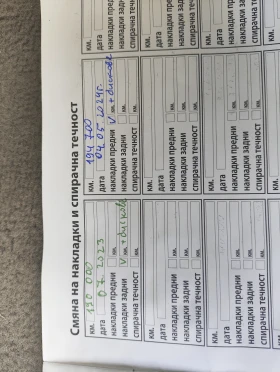 Смяна на накладки и спирачна течност
км. 190 000
дата 07. 2023
накладки предни км.
накладки задни V + дискове км.
спирачна течност
км. 194 700
дата 04. 05. 2024г.
накладки предни V + дискове км.
накладки задни км.
спирачна течност
км.
дата
накладки предни км.
накладки задни км.
спирачна течност
км.
дата
накладки предни км.
накладки задни км.
спирачна течност
км.
дата
накладки предни
накладки задни
спирачна течност
км.
дата
накладки предни
накладки задни
спирачна течност
км.
дата
накладки предни
накладки задни
спирачна течност
км.
дата
накладки предни
накладки задни
спирачна течност